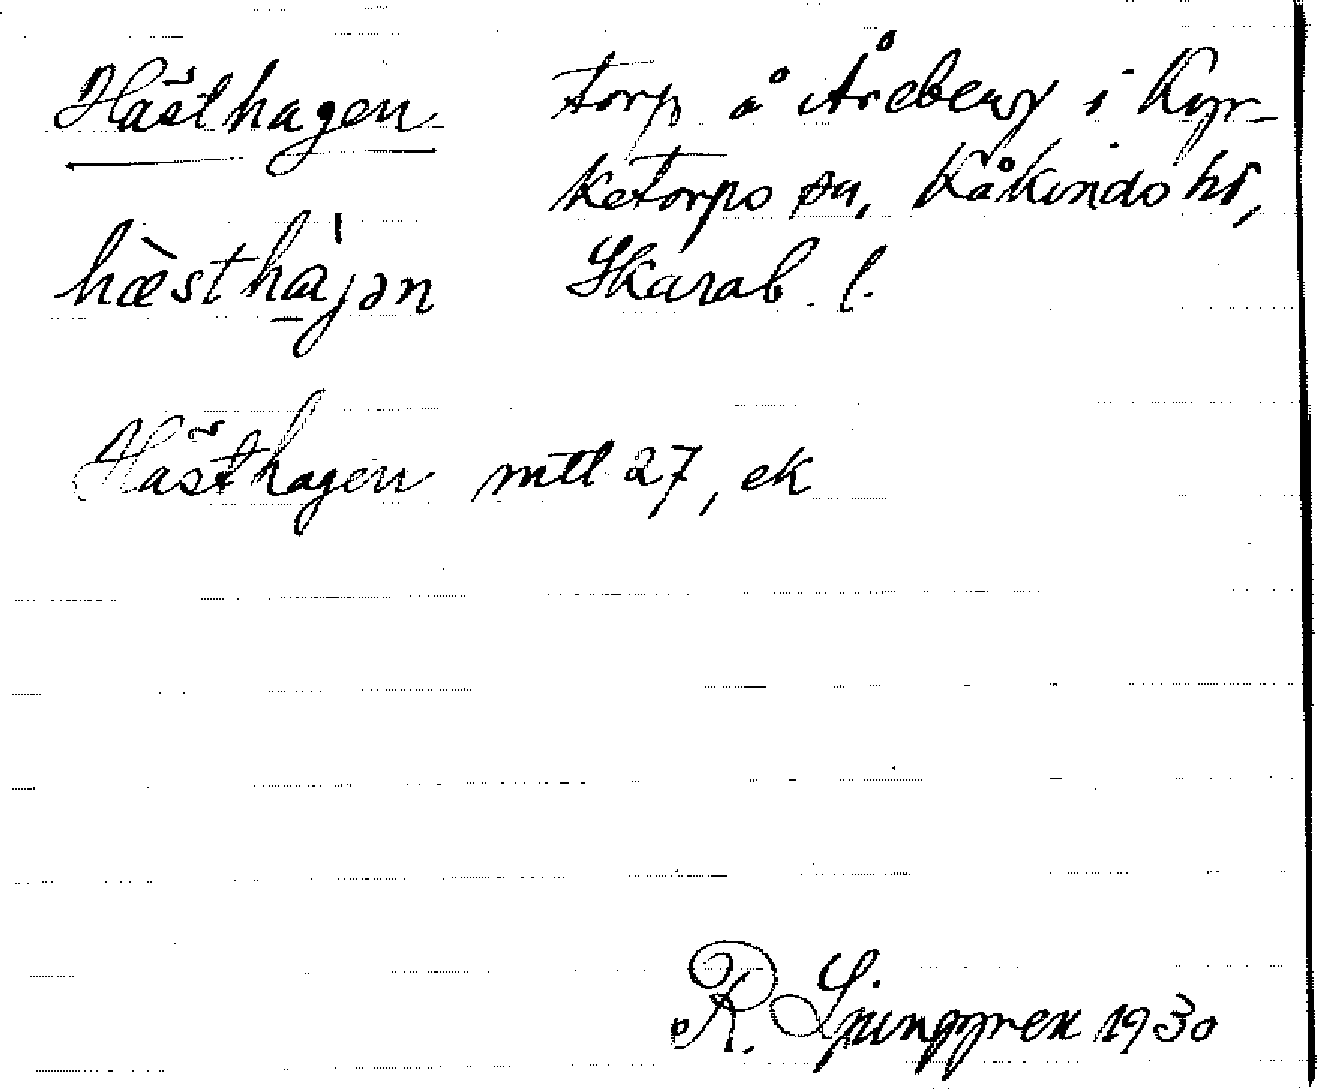 Hästhagen torp å Åreberg i Kyr-
ketorps sn, Kåkinds hd,
hæ̀sthàjən Skarab. l.
Hästhagen mtl 27, ek
R. Ljunggren 1930